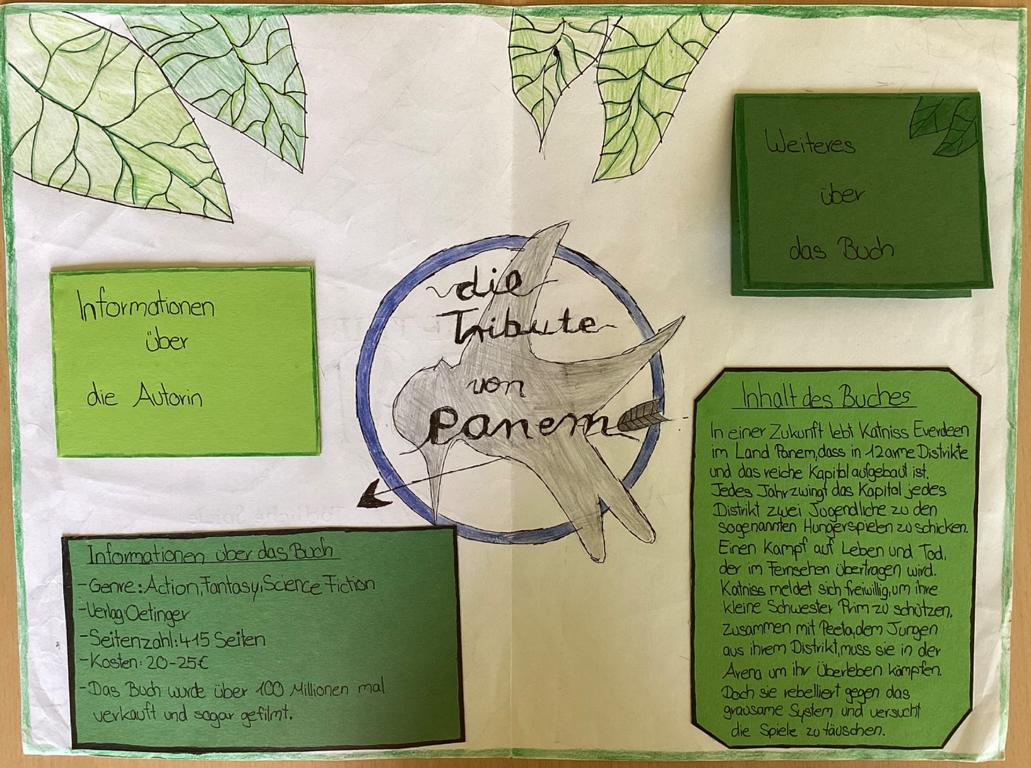 die
Tribute
von
Panem
Informationen
über
die Autorin
Weiteres
über
das Buch
Informationen über das Buch
- Genre: Action, Fantasy, Science Fiction
- Verlag Oetinger
- Seitenzahl: 415 Seiten
- Kosten: 20-25€
- Das Buch wurde über 100 Millionen mal
verkauft und sogar gefilmt.
Inhalt des Buches
In einer Zukunft lebt Katniss Everdeen
im Land Panem, dass in 12 arme Distrikte
und das reiche Kapitol aufgebaut ist.
Jedes Jahr zwingt das Kapitol jedes
Distrikt zwei Jugendliche zu den
sogenannten Hungerspielen zu schicken.
Einen Kampf auf Leben und Tod,
der im Fernsehen übertragen wird.
Katniss meldet sich freiwillig, um ihre
kleine Schwester Prim zu schützen,
zusammen mit Peeta, dem Jungen
aus ihrem Distrikt, muss sie in der
Arena um ihr Überleben kämpfen.
Doch sie rebelliert gegen das
grausame System und versucht
die Spiele zu täuschen.